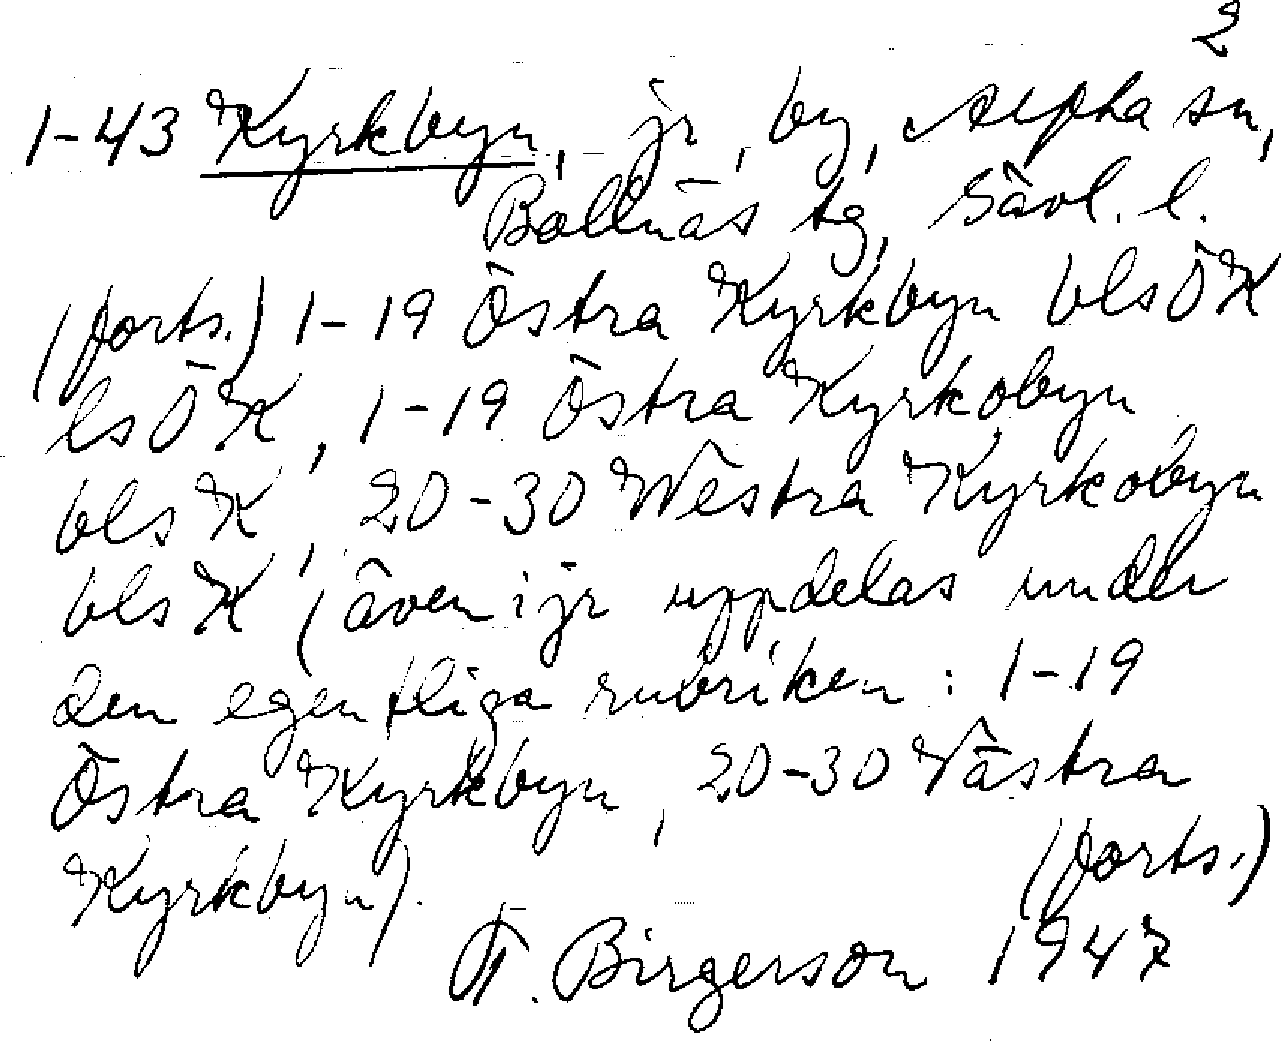 2
1-43 Kyrkbyn, jr, by, Alfta sn,
Bollnäs tg, Gävl. l.
(forts.) 1-19 Östra Kyrkbyn bls ÖK
ls ÖK, 1-19 Östra Kyrkobyn
bls K, 20-30 Westra Kyrkobyn
bls K (även i jr uppdelas under
den egentliga rubriken: 1-19
Östra Kyrkbyn, 20-30 Västra
Kyrkbyn). (forts.)
F. Birgerson 1947